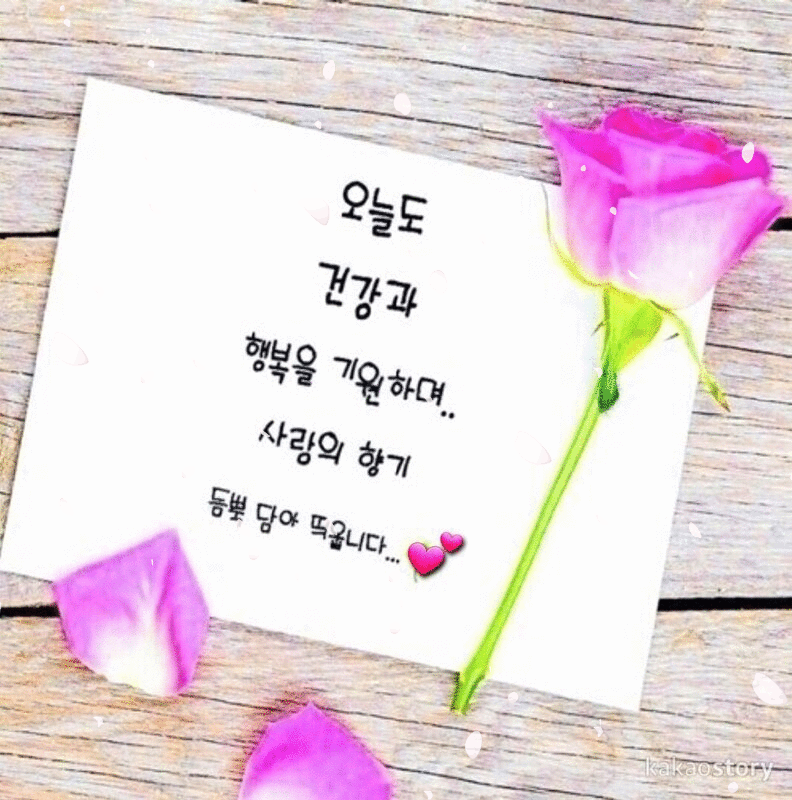 오늘도
건강과
행복을 기원하며..
사랑의 향기
듬뿍 담아 띄웁니다...
kakaostory